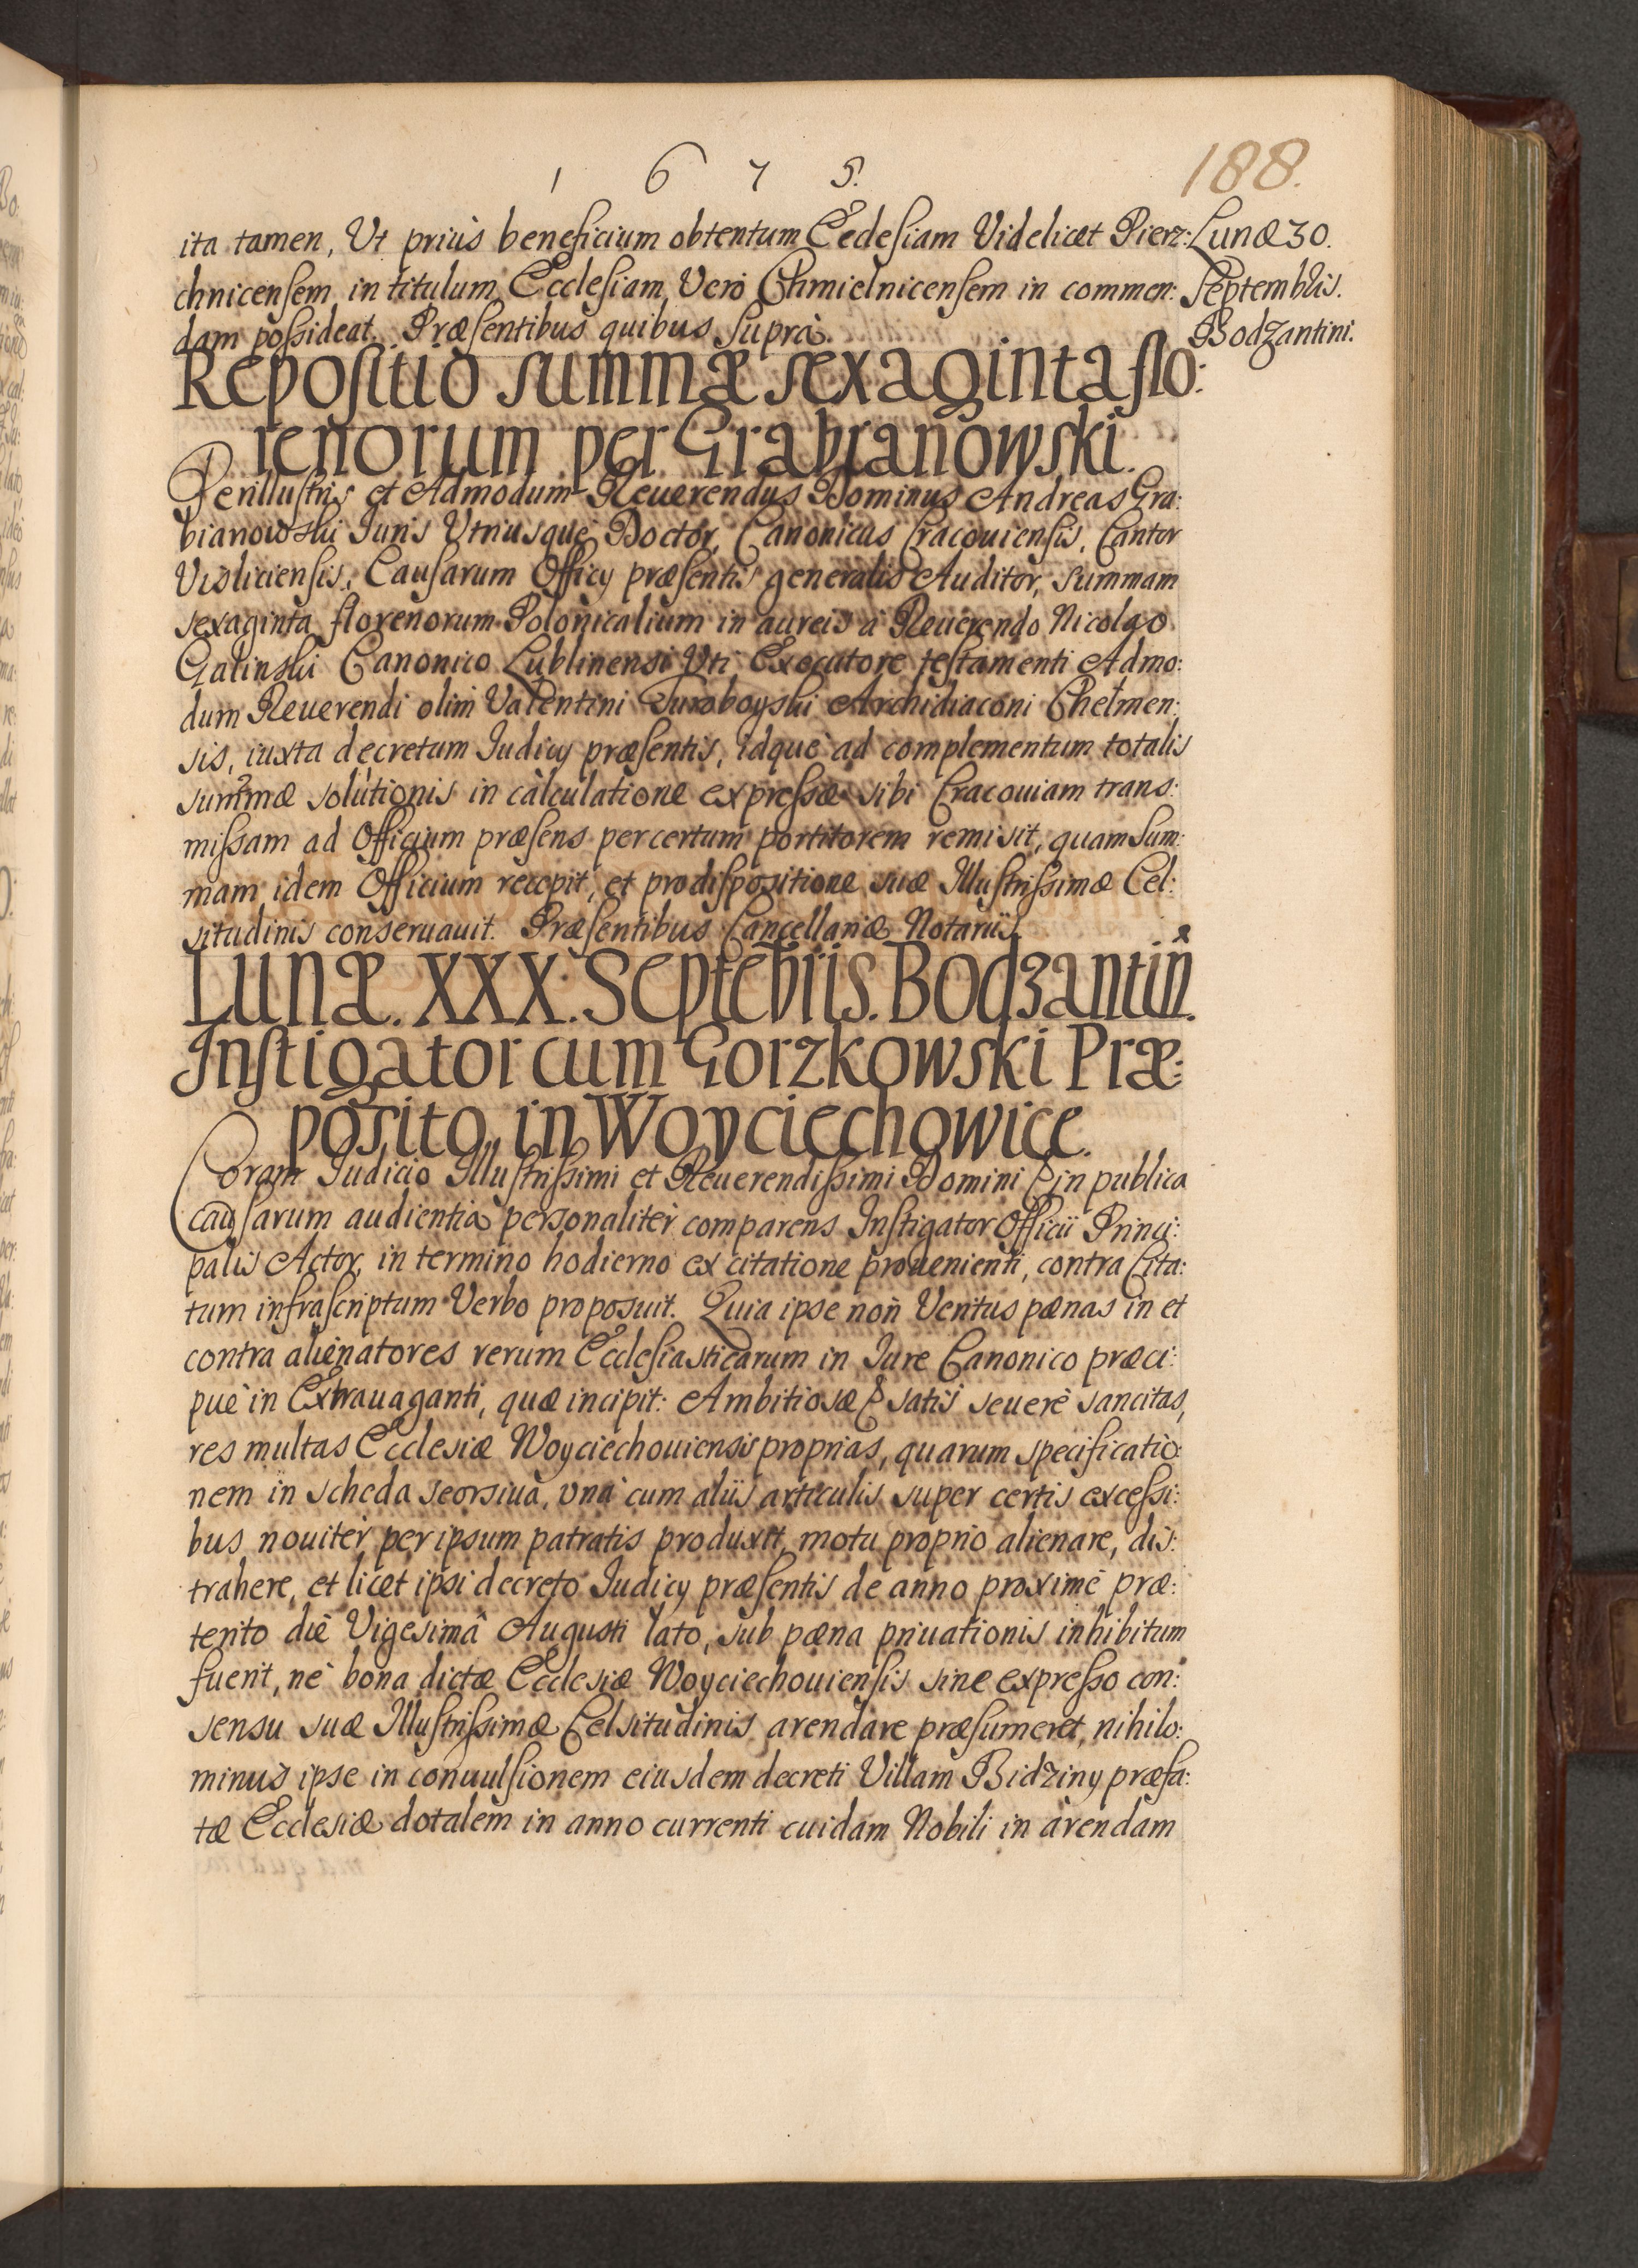 1 6 7 5.
188.
ita tamen, Ut priùs beneficium obtentum Ecclesiam Videlicet Pierz:
chnicensem in titulum Ecclesiam Verò Chmielnicensem in commen:
dam possideat. Præsentibus quibus Suprà.
Lunæ 30.
Septembris.
Bodzantini.
Repositio summæ sexaginta flo:
renorum per Grabianowski.
Perillustris et Admodum Reuerendus Dominus Andreas Gra:
bianowski Iuris Utriusque Doctor, Canonicus Cracouiensis, Cantor
Visliciensis, Causarum Officy præsentis generalis Auditor, summam
sexaginta florenorum Polonicalium in aureis à Reuerendo Nicolao
Galinski Canonico Lublinensi Uti Exocutore testamenti Admo:
dum Reuerendi olim Valentini Turoboyski Archidiaconi Chełmen:
sis, iuxta decretum Iudicy præsentis, idque ad complementum totalis
summæ solutionis in calculatione expressæ sibi Cracouiam trans:
missam ad Officium præsens per certum portitorem remisit, quam Sum:
mam idem Officium recepit, et pro dispositione suæ Illustrissimæ Cel:
situdinis conseruauit. Præsentibus Cancellariæ Notariis.
Lunæ. XXX. Septebris. Bodzantin.
Instigator cum Gorzkowski Præ:
posito in Woyciechowice.
Coram Iudicio Illustrissimi et Reuerendissimi Domini in publica
causarum audientia personaliter comparens Instigator Officii Princi:
palis Actor, in termino hodierno ex citatione prouenienti, contra Cita:
tum infrascriptum Verbo proposuit. Quia ipse non Veritus pænas in et
contra alienatores rerum Ecclesiasticarum in Iure Canonico præci:
puè in Extrauaganti, quæ incipit: Ambitiosæ satis seuerè sancitas,
res multas Ecclesiæ Woyciechouiensis proprias, quarum specificatio:
nem in scheda seorsiua, unà cum aliis articulis super certis excessi:
bus nouiter per ipsum patratis produxit, motu proprio alienare, dis:
trahere, et licet ipsi decreto Iudicy præsentis de anno proximè præ:
terito die Vigesimâ Augusti lato, sub pæna priuationis inhibitum
fuerit, nè bona dictæ Ecclesiæ Woyciechouiensis sine expresso con:
sensu suæ Illustrissimæ Celsitudinis arendare præsumeret, nihilo:
minus ipse in conuulsionem eiusdem decreti Villam Bidziny præfa:
tæ Ecclesiæ dotalem in anno currenti cuidam Nobili in arendam